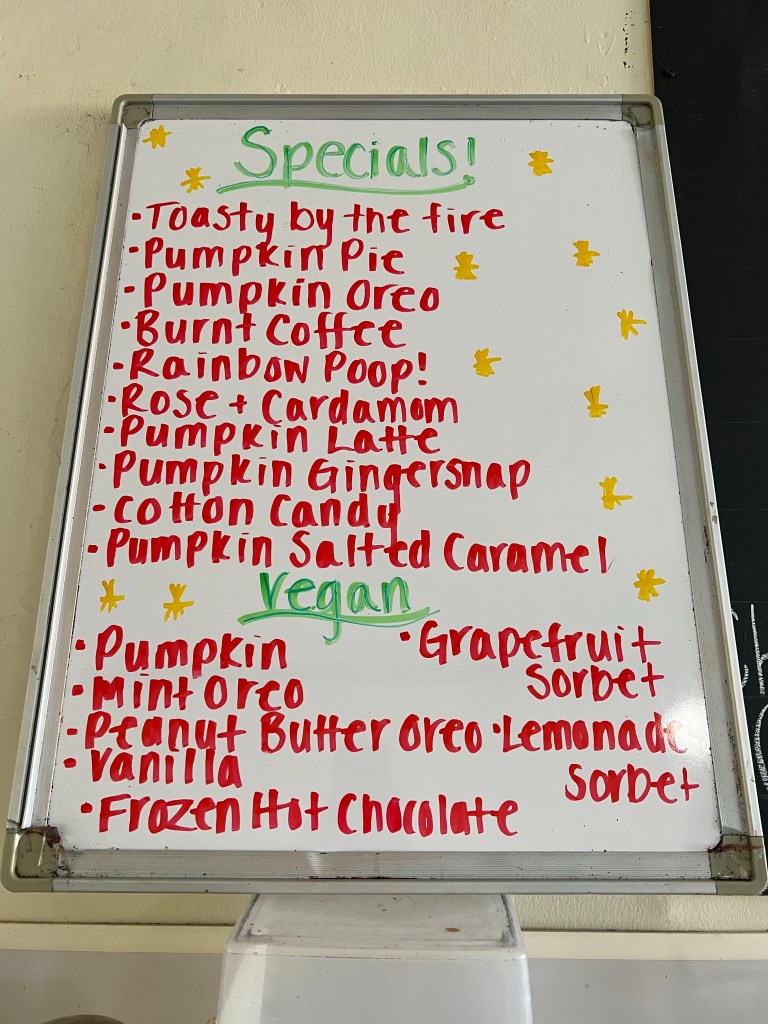 Specials!
• Toasty by the fire
• Pumpkin Pie
• Pumpkin Oreo
• Burnt Coffee
• Rainbow Poop!
• Rose + Cardamom
• Pumpkin Latte
• Pumpkin Gingersnap
• Cotton Candy
• Pumpkin Salted Caramel
Vegan
• Pumpkin
• Mint Oreo
• Peanut Butter Oreo
• Vanilla
• Frozen Hot Chocolate
• Grapefruit
Sorbet
• Lemonade
Sorbet